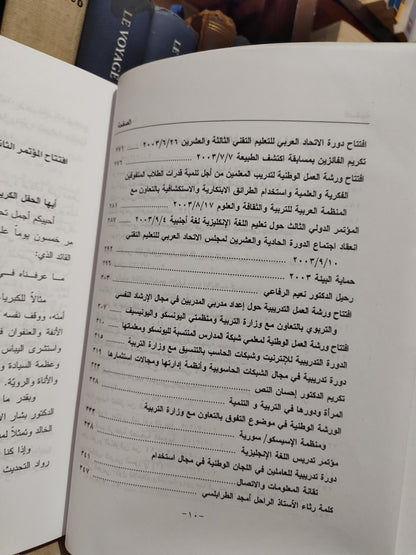 LE VOYAGE
LE V
الصفحة
افتتاح دورة الاتحاد العربي للتعليم التقني الثالثة والعشرين ٢٠٠٣/٦/٢٦
تكريم الفائزين بمسابقة اكتشف الطبيعة ٢٠٠٣/٧/٧
افتتاح ورشة العمل الوطنية لتدريب المعلمين من أجل تنمية قدرات الطلاب المتفوقين
الفكرية والعلمية واستخدام الطرائق الابتكارية والاستكشافية بالتعاون مع
المنظمة العربية للتربية والثقافة والعلوم ٢٠٠٣/٨/١٧
المؤتمر الدولي الثالث حول تعليم اللغة الإنكليزية لغة أجنبية ٢٠٠٣/٩/٤
انعقاد اجتماع الدورة الحادية والعشرين لمجلس الاتحاد العربي للتعليم التقني
٢٠٠٣/٩/١٠
حماية البيئة ٢٠٠٣
رحيل الدكتور نعيم الرفاعي
افتتاح ورشة العمل التدريبية حول إعداد مدربي المدربين في مجال الإرشاد النفسي
والتربوي بالتعاون مع وزارة التربية ومنظمتي اليونسكو واليونيسيف
افتتاح ورشة العمل الوطنية لمعلمي شبكة المدارس المنتسبة لليونسكو ومعلماتها ٣١٠
الدورة التدريبية للإنترنيت وشبكات الحاسب بالتنسيق مع وزارة التربية ٣١٥
دورة تدريبية في مجال الشبكات الحاسوبية وأنظمة إدارتها ومجالات استثمارها ٣١٩
تكريم الدكتور إحسان النص
المرأة ودورها في التربية و التنمية ٣٢٨
الورشة الوطنية في موضوع التفوق بالتعاون مع وزارة التربية
ومنظمة الإسيسكو/ سورية ٣٣٣
مؤتمر تدريس اللغة الإنجليزية ٣٣٨
دورة تدريبية للعاملين في اللجان الوطنية في مجال استخدام
تقانة المعلومات والاتصال ٣٤١
كلمة رثاء الأستاذ الراحل أمجد الطرابلسي ٣٤٧
-١٠-
افتتاح المؤتمر الثا
أيها الحفل الكري
أحييكم أجمل تح
مر خمسون يوماً عل
القائد الذي:
ما عرفناه فس
مثالاً للكبرياء
أمته، ووقف نفسه
الأنفة والعنفوان ف
واستشرى اليباس
وعظمة السيادة و
والأناة والرويّة.
وبقدر ما
الدكتور بشار الأ
الخالد وتمثلاً لم
وإذا كنا
رواد التحديث